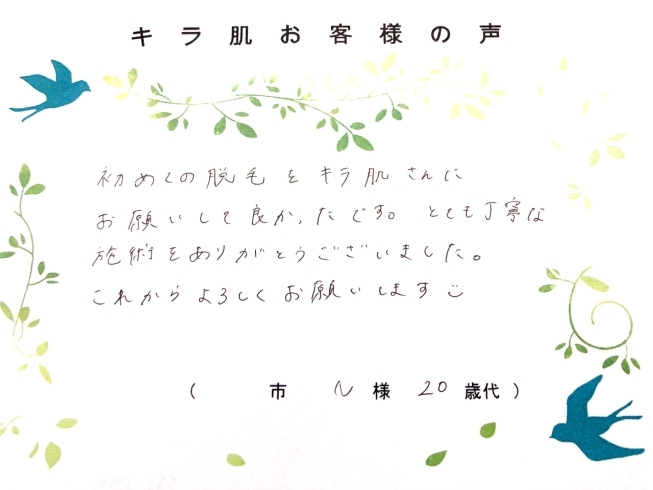 キラ肌お客様の声
初めての脱毛をキラ肌さんに
お願いして良かったです。とても丁寧な
施術をありがとうございました。
これからよろしくお願いします
( 市 N 様 20 歳代 )